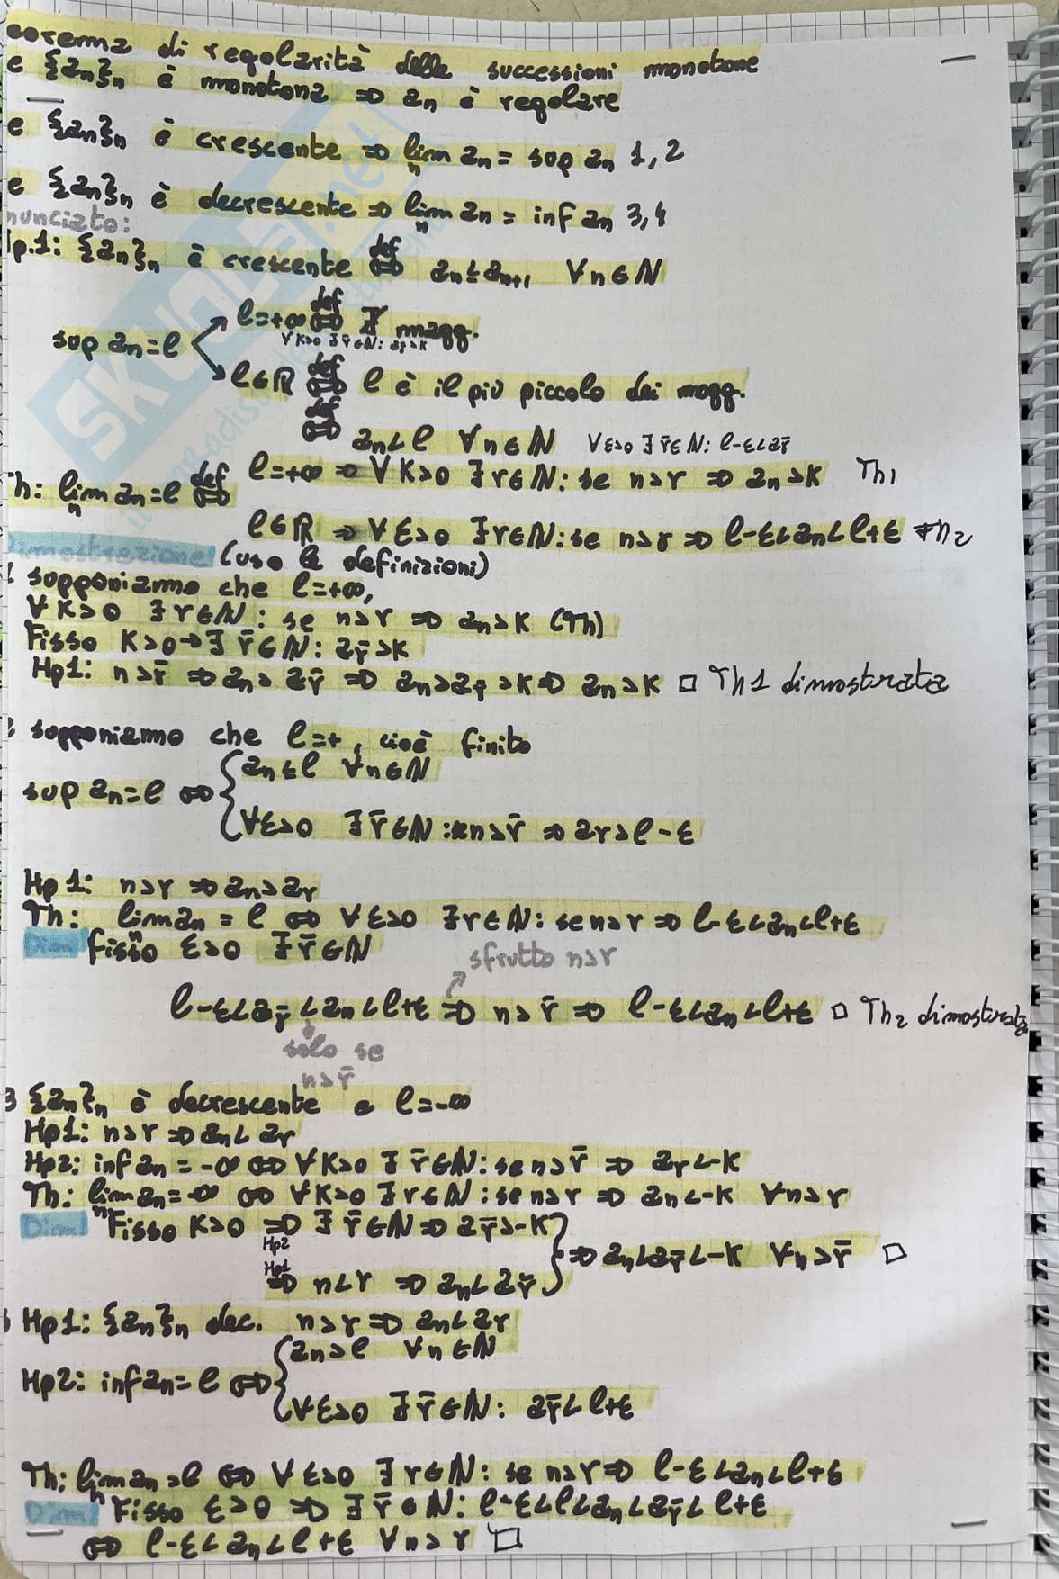 eorema di regolarità delle successioni monotone
e {an}n è monotona => an è regolare
e {an}n è crescente => lim n an = sup an 1,2
e {an}n è decrescente => lim n an = inf an 3,4
nunciato:
p.1: {an}n è crescente <=>def an≤an+1 ∀n∈N
sup an=l
l=+∞ <=>def ∄ magg.
∀K>0 ∃r̄∈N: ar̄>K
l∈R <=>def l è il più piccolo dei magg.
<=>def an≤l ∀n∈N ∀ε>0 ∃r̄∈N: l-ε<ar̄
h: lim n an=l <=>def l=+∞ => ∀K>0 ∃r∈N: se n>r => an>K Th1
l∈R => ∀ε>0 ∃r∈N: se n>r => l-ε<an<l+ε Th2
imostrazione (uso le definizioni)
supponiamo che l=+∞,
∀K>0 ∃r∈N: se n>r => an>K (Th)
Fisso K>0→∃r̄∈N: ar̄>K
Hp1: n>r̄ => an>ar̄ => an>ar̄>K => an>K □ Th1 dimostrata
supponiamo che l=+, cioè finito
sup an=l <=> { an≤l ∀n∈N
∀ε>0 ∃r̄∈N: n>r̄ => ar>l-ε
Hp1: n>r => an>ar
Th: lim n an = l <=> ∀ε>0 ∃r∈N: se n>r => l-ε<an<l+ε
Dim fisso ε>0 ∃r̄∈N
sfrutto n>r
l-ε<ar̄<an<l+ε => n>r̄ => l-ε<an<l+ε □ Th2 dimostrata
solo se
n>r̄
3 {an}n è decrescente e l=-∞
Hp1: n>r => an<ar
Hp2: inf an=-∞ <=> ∀K>0 ∃r̄∈N: se n>r̄ => ar<-K
Th: lim n an=-∞ <=> ∀K>0 ∃r∈N: se n>r => an<-K ∀n>r
Dim Fisso K>0 => Hp2 ∃r̄∈N => ar̄>-K
} => an<ar̄<-K ∀n>r̄ □
Hp1 => n<r => an<ar̄
Hp1: {an}n dec. n>r => an<ar
Hp2: inf an=l <=> { an>l ∀n∈N
∀ε>0 ∃r̄∈N: ar̄<l+ε
Th: lim n an=l <=> ∀ε>0 ∃r∈N: se n>r => l-ε<an<l+ε
Dim Fisso ε>0 => ∃r̄∈N: l-ε<l<an<ar̄<l+ε
<=> l-ε<an<l+ε ∀n>r □